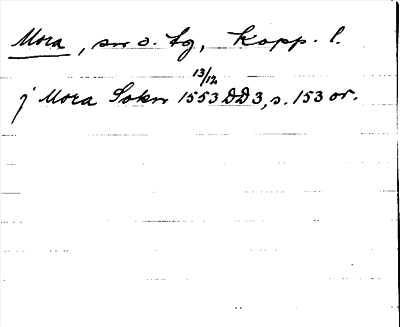 Mora, sn o. tg, Kopp. l.
j Mora Sokn 1553 13/12 DD3, s. 153 or.